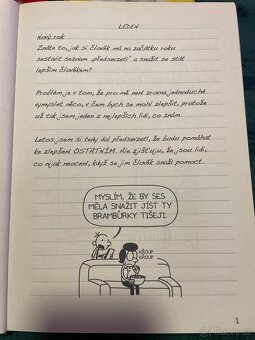 LEDEN
Nový rok
Znáte to, jak si člověk má na začátku roku
sestavit seznam „předsevzetí" a snažit se stát
lepším člověkem?
Problém je v tom, že pro mě není zrovna jednoduché
vymyslet něco, v čem bych se mohl zlepšit, protože
už tak jsem jeden z nejlepších lidí, co znám.
Letos jsem si tedy dal předsevzetí, že budu pomáhat
ke zlepšení OSTATNÍM. Ale zjišťuju, že jsou lidi,
co nijak neocení, když se jim člověk snaží pomoct.
MYSLÍM,
ŽE BY SES
MĚLA SNAŽIT JÍST TY
BRAMBŮRKY TIŠEJI.
KŘOUP
KŘOUP
1